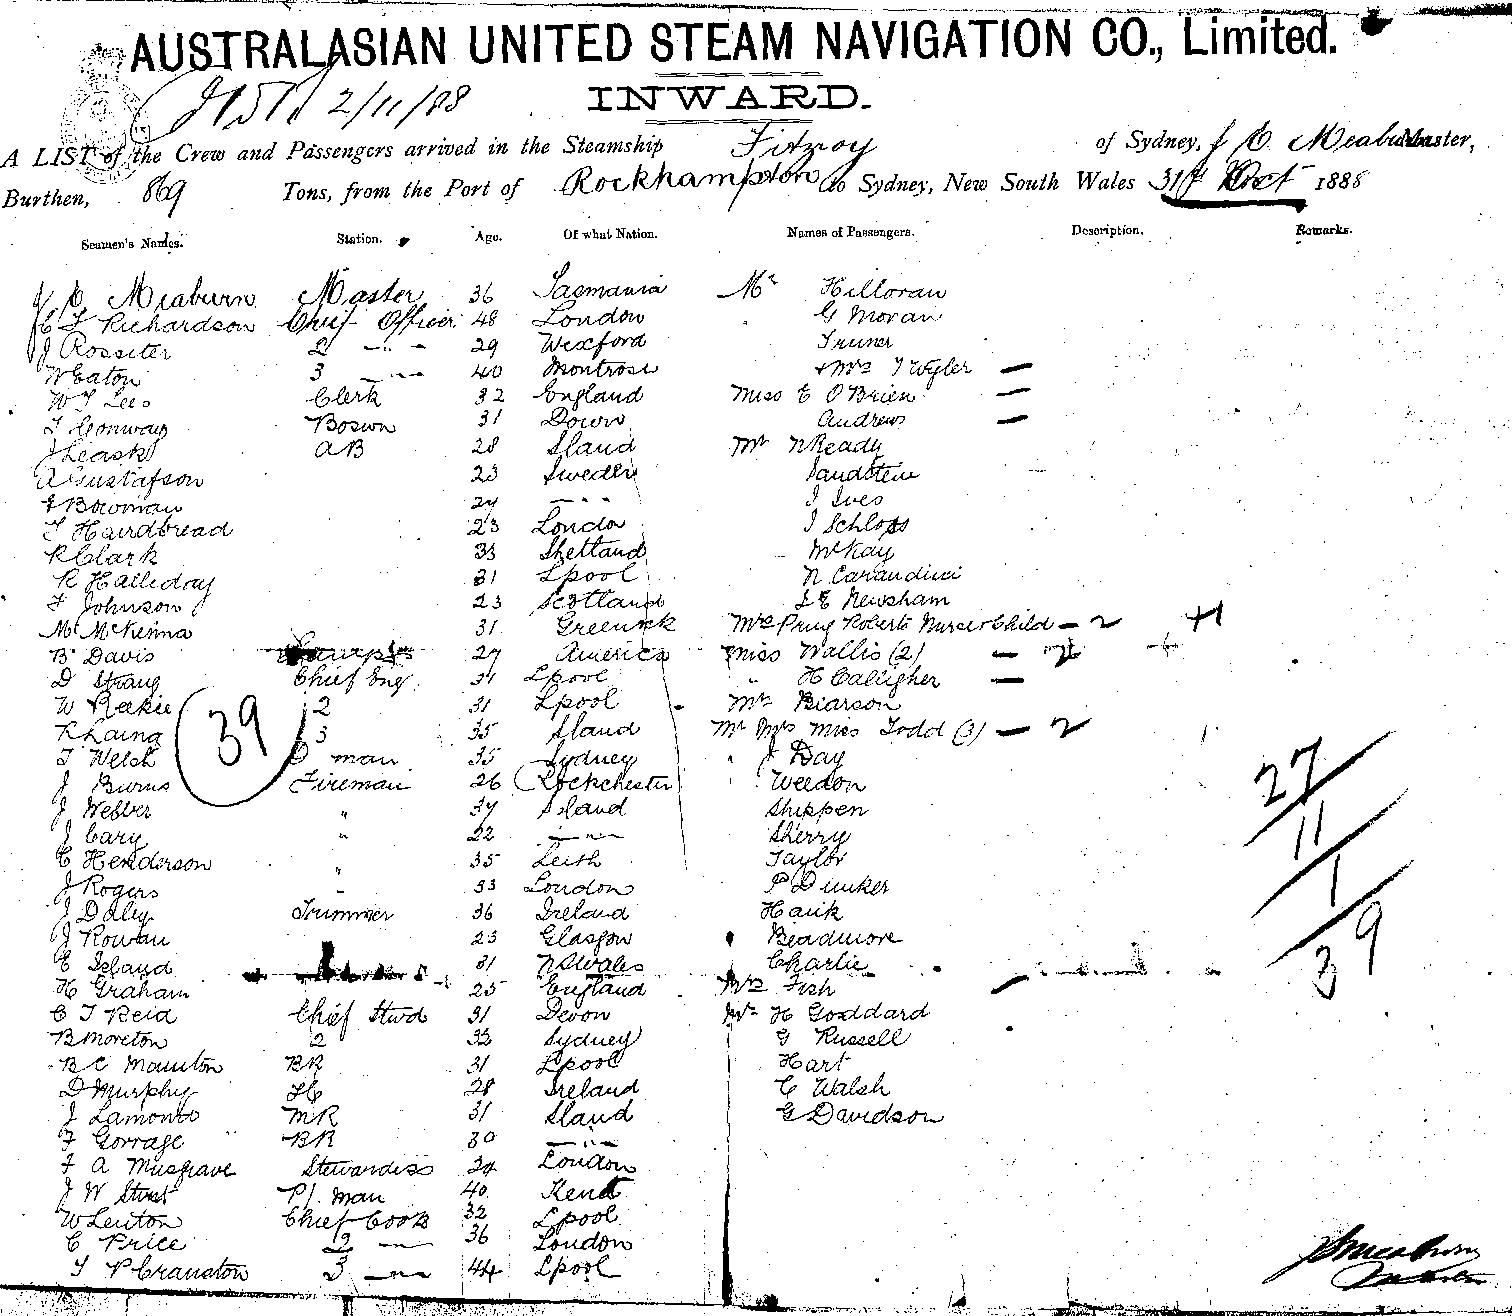 AUSTRALASIAN UNITED STEAM NAVIGATION CO., Limited.
2/11/88
INWARD.
A LIST of the Crew and Passengers arrived in the Steamship Fitzroy of Sydney, J C Meaburn Master,
Burthen, 869 Tons, from the Port of Rockhampton to Sydney, New South Wales 31st Oct 1888
Seamen's Names. Station. Age. Of what Nation. Names of Passengers. Description. Remarks.
J C Meaburn Master 36 Tasmania Mr Hilloran
C T Richardson Chief Officer 48 London G Moran
J Rossiter 2 -"- 29 Wexford Truner
W Eaton 3 -"- 40 Montrose + Mrs T Wyler —
W T Lees Clerk 32 England Miss E O'Brien —
T Conway Bosun 31 Down Andrews —
J Leask AB 28 Sland Mr N Ready
A Gustafson 23 Sweden Sandstein
E Bowman 24 -"- J Ives
T Hairdbread 23 London J Schloss
R Clark 33 Shetland McKay
R Halliday 31 Lpool N Carandini
F Johnson 23 Scotland S E Newsham
M McKenna 31 Greenock Mrs Roberts Nurse + Child — 2 +1
B Davis 27 America Miss Wallis (2) —
D Strang Chief Eng 34 Lpool " H Calligher —
W Reekie 2 31 Lpool Mr Pearson
R Laing 3 35 Sland Mr Mrs Miss Todd (3) — 2
39
T Welsh D man 35 Sydney " J Day
J Burns Fireman 26 Rockchester Weedon
27
J Webber " 37 Sland Shippen
11
J Cary " 22 -"- Sherry
C Henderson " 35 Leith Taylor
1
J Rogers " 33 London P Dunker
J Daley Trimmer 36 Ireland Hauk
39
J Rowan 23 Glasgow Beadmore
E Island 31 N S Wales Charlie
H Graham 25 England Mrs Fish —
C T Reid Chief Stwd 31 Devon Mr H Goddard
B Moreton 2 33 Sydney G Russell
B C Manton BR 31 Lpool Hart
D Murphy 28 Ireland C Walsh
J Lamond MR 31 Sland G Davidson
F Gorrage BR 30 -"-
F A Musgrave Stewardess 34 London
J W Strut P/. man 40 Kent
W Lenton Chief Cook 32 Lpool
C Price 2 -"- 36 London
T P Cranston 3 -"- 44 Lpool